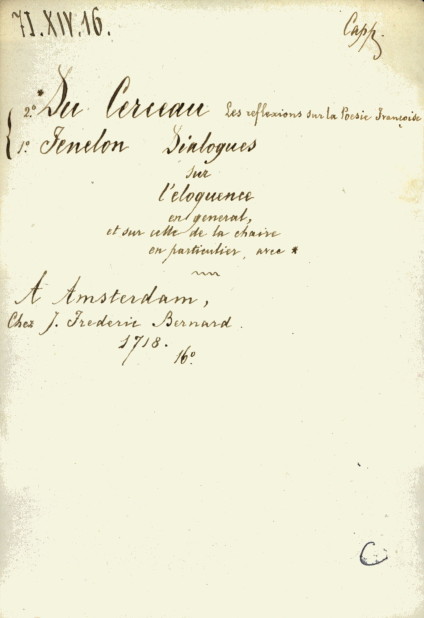 71.XIV.16.
Capp.
2º * Du Cerceau Les reflexions sur la Poesie Françoise
1º Fenelon Dialogues
sur
l'eloquence
en general,
et sur celle de la chaire
en particulier, avec *
A Amsterdam,
Chez J. Frederic Bernard.
1718.
16º
C